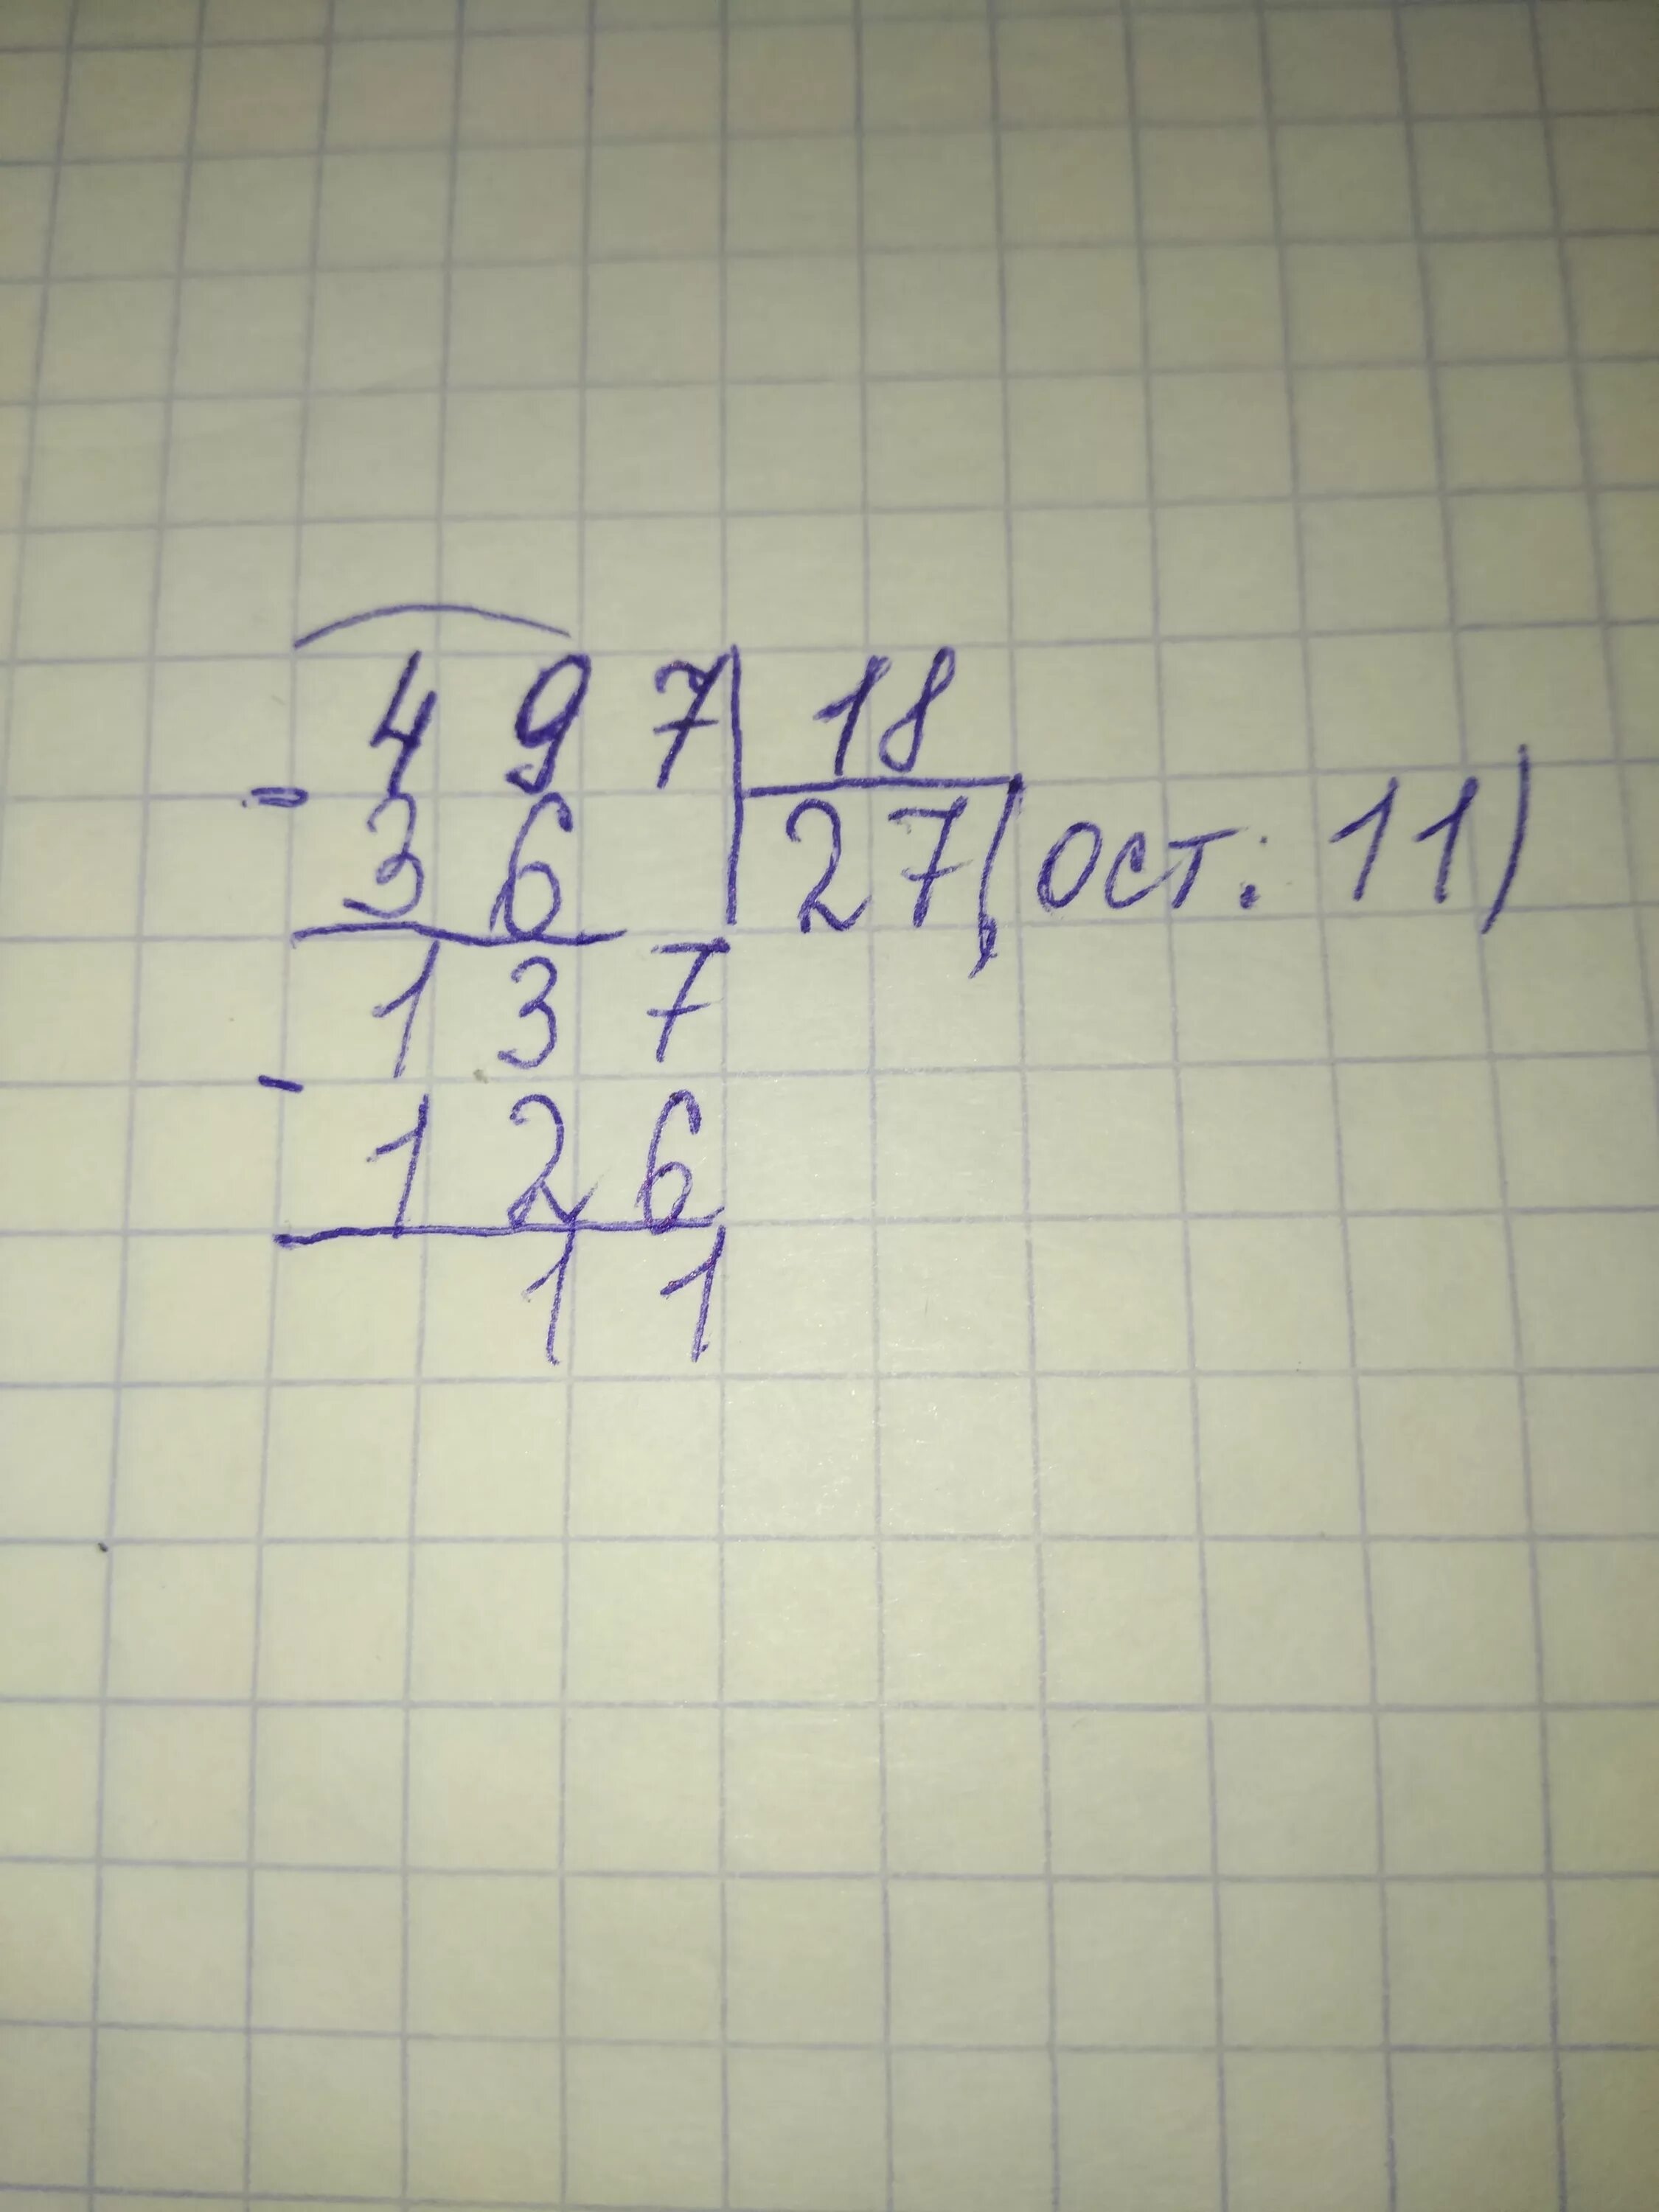 497 18
- 36 27(ост: 11)
137
- 126
11